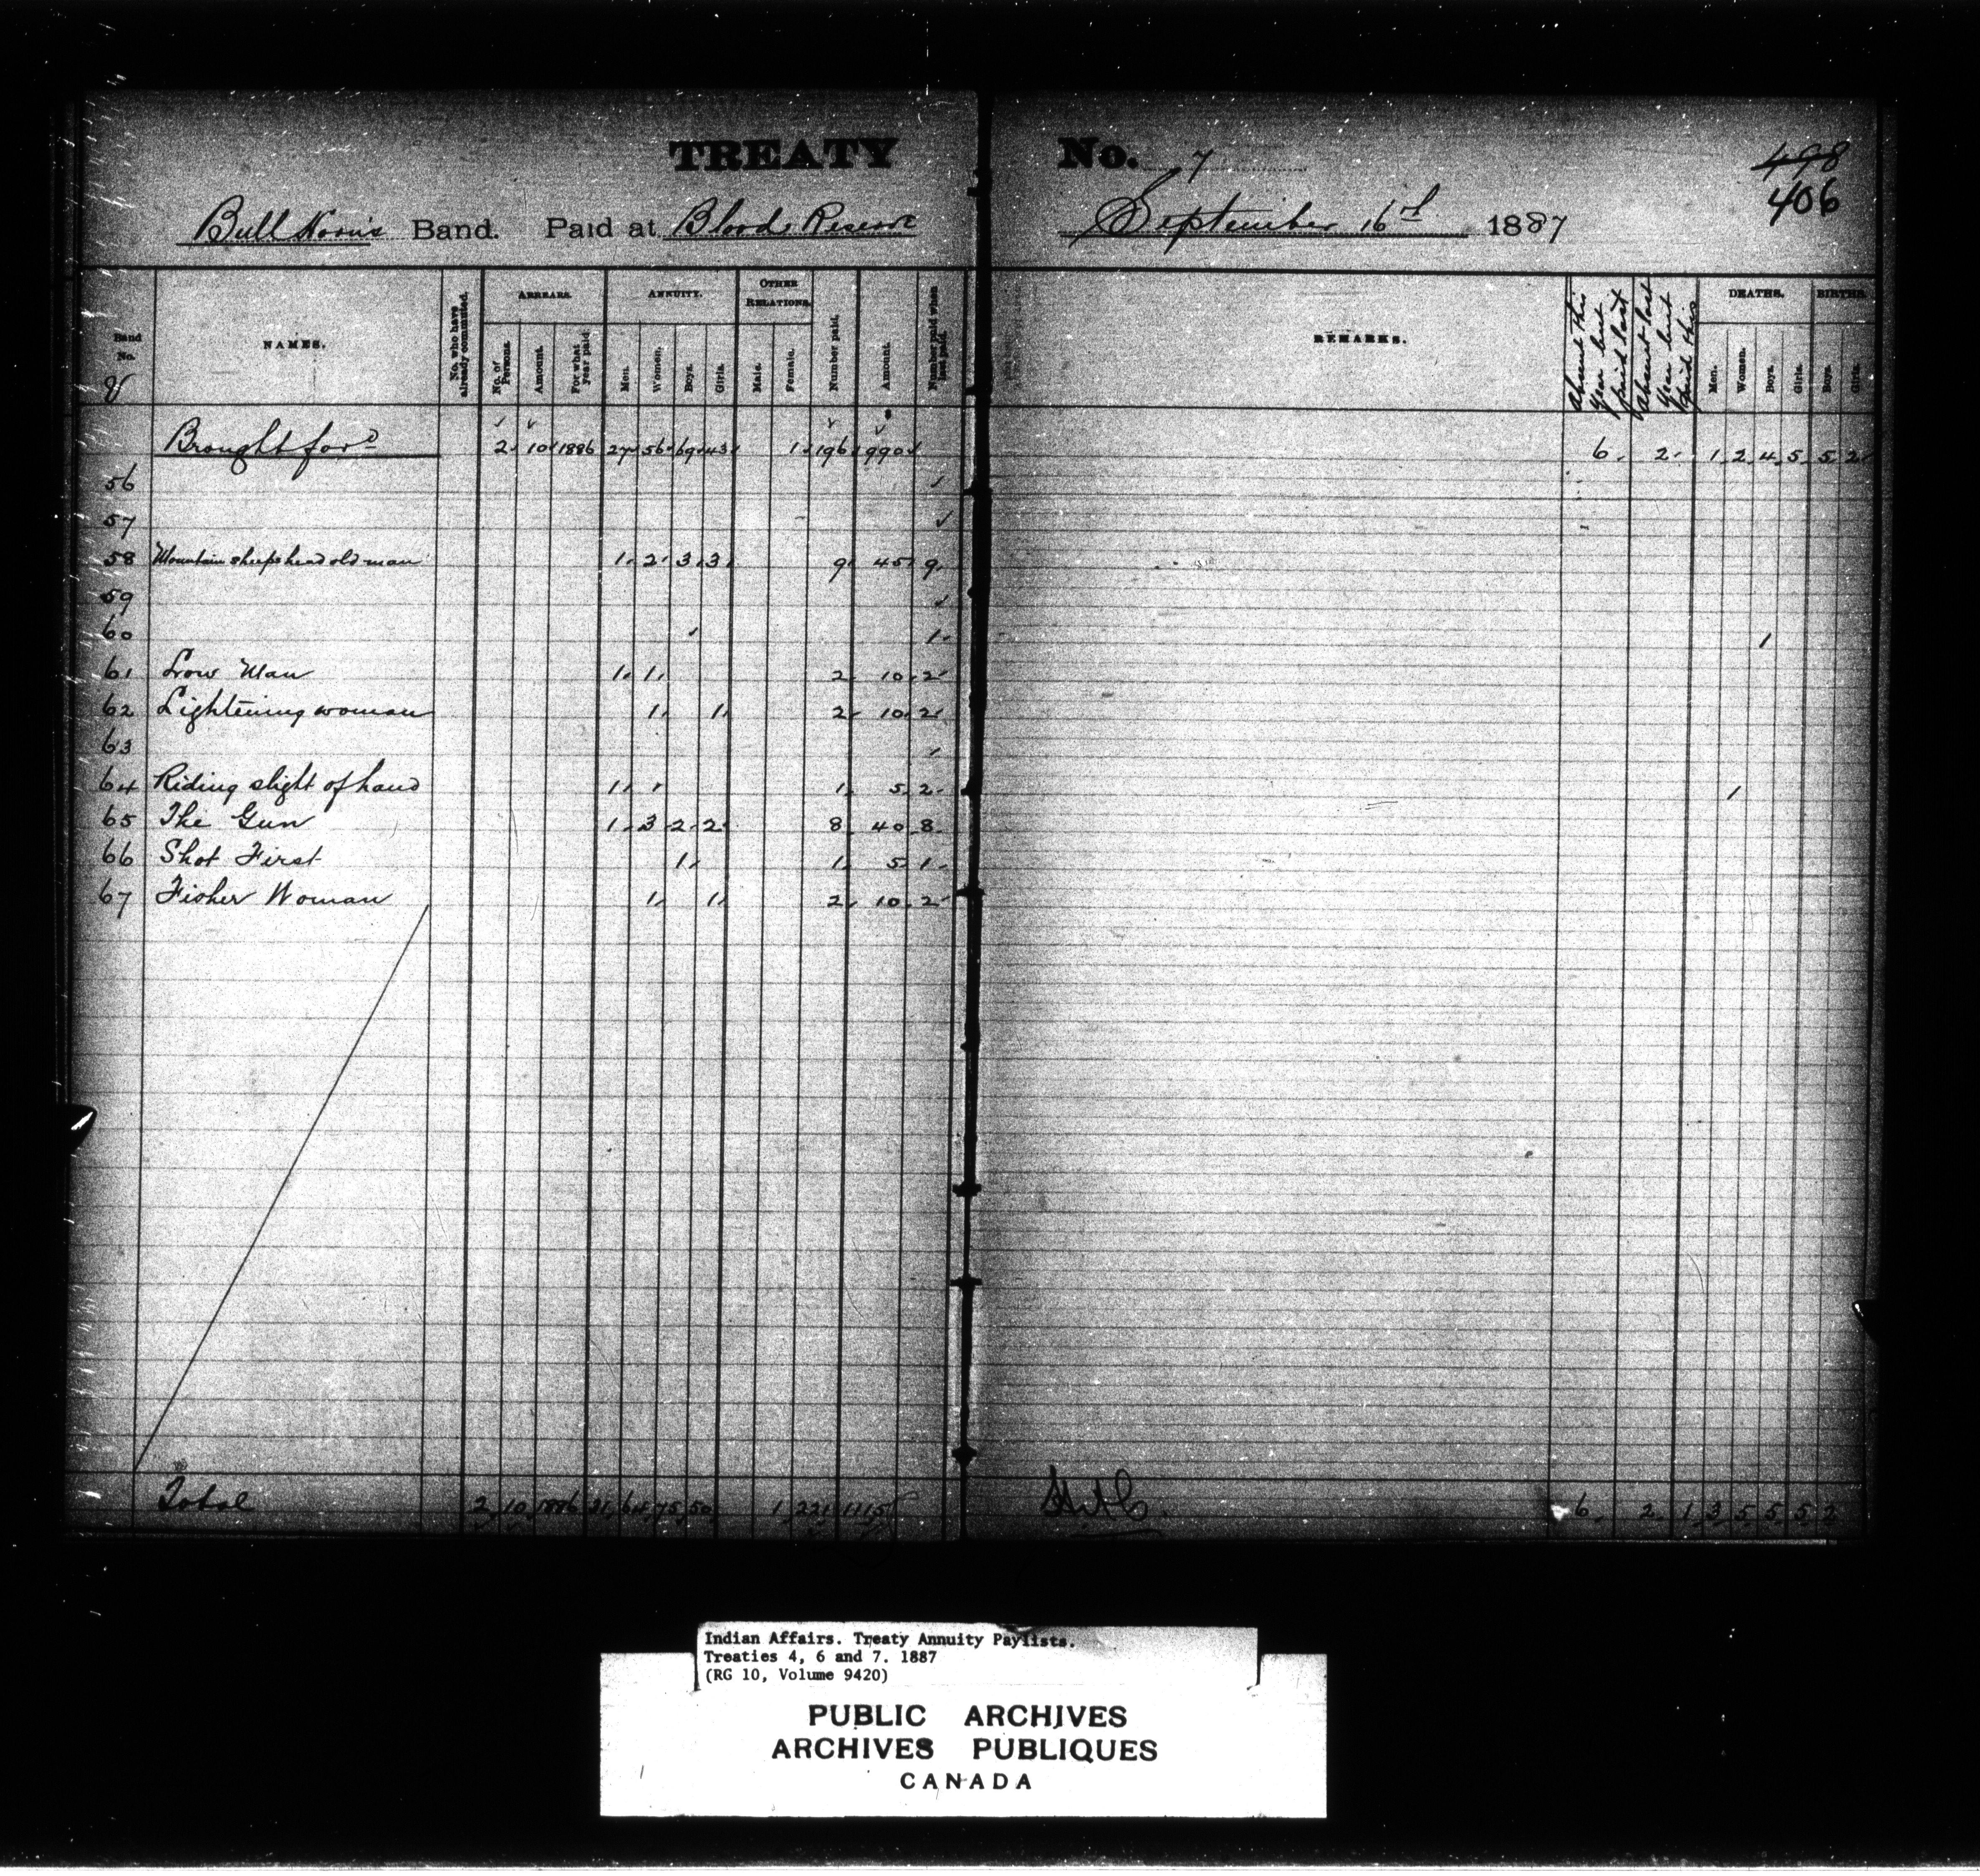 TREATY No. 7
498
406
Bull Horn's Band. Paid at Blood Reserve September 16th 1887
Band No.
NAMES.
No. who have already commuted.
ARREARS.
No. of Persons.
Amount.
For what year paid
ANNUITY.
Men.
Women.
Boys.
Girls.
OTHER RELATIONS.
Male.
Female.
Number paid.
Amount.
Number paid when last paid.
REMARKS.
Absent this year but paid last
Absent last year but paid this
DEATHS.
Men.
Women.
Boys.
Girls.
BIRTHS.
Boys.
Girls.
Brought ford 2 10 1886 27 56 69 43 1 196 990 6 2 1 2 4 5 5 2
56
57
58 Mountain sheeps head old man 1 2 3 3 9 45 9
59
60 1 1
61 Low Man 1 1 2 10 2
62 Lightening woman 1 1 2 10 2
63
64 Riding slight of hand 1 1 5 2 1
65 The Gun 1 3 2 2 8 40 8
66 Shot First 1 1 5 1
67 Fisher Woman 1 1 2 10 2
Total 2 10 1886 31 64 75 50 1 221 1115 6 2 1 3 5 5 5 2
Indian Affairs. Treaty Annuity Paylists.
Treaties 4, 6 and 7. 1887
(RG 10, Volume 9420)
PUBLIC ARCHIVES
ARCHIVES PUBLIQUES
CANADA